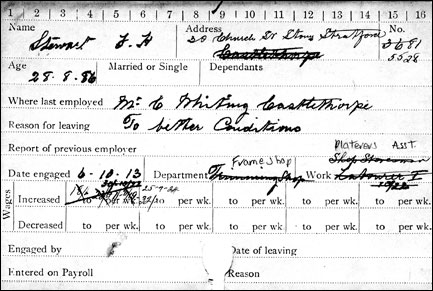 1 2 3 4 5 6 7 8 9 10 11 12 13 14 15 16
Name Address No.
Stewart F. H 20 Church St Stony Stratford 3681
Castlethorpe 5528
Age Married or Single Dependants
28.8.86
Where last employed Mr C Whiting Castlethorpe
Reason for leaving To better Conditions
Report of previous employer Platerers Asst.
Frame shop Shop Storeman
Date engaged 6-10-13 Department Trimming Shop Work Labourer I
25-9-24
Wages
Increased to per wk. to per wk. to per wk. to per wk.
Decreased to per wk. to per wk. to per wk. to per wk.
Engaged by Date of leaving
Entered on Payroll Reason